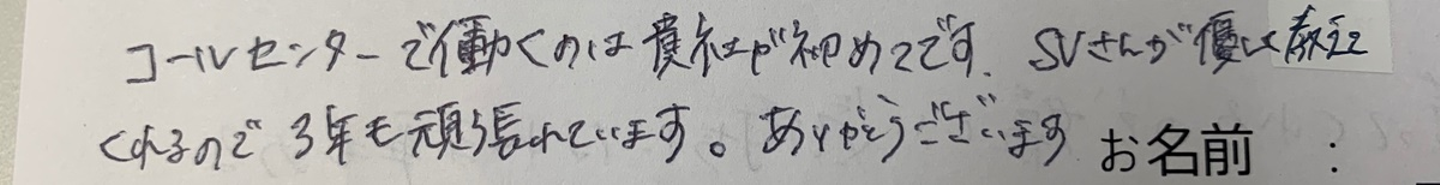 コールセンターで働くのは貴社が初めてです。SVさんが優しく教えて
くれるので3年も頑張れています。ありがとうございます お名前 :